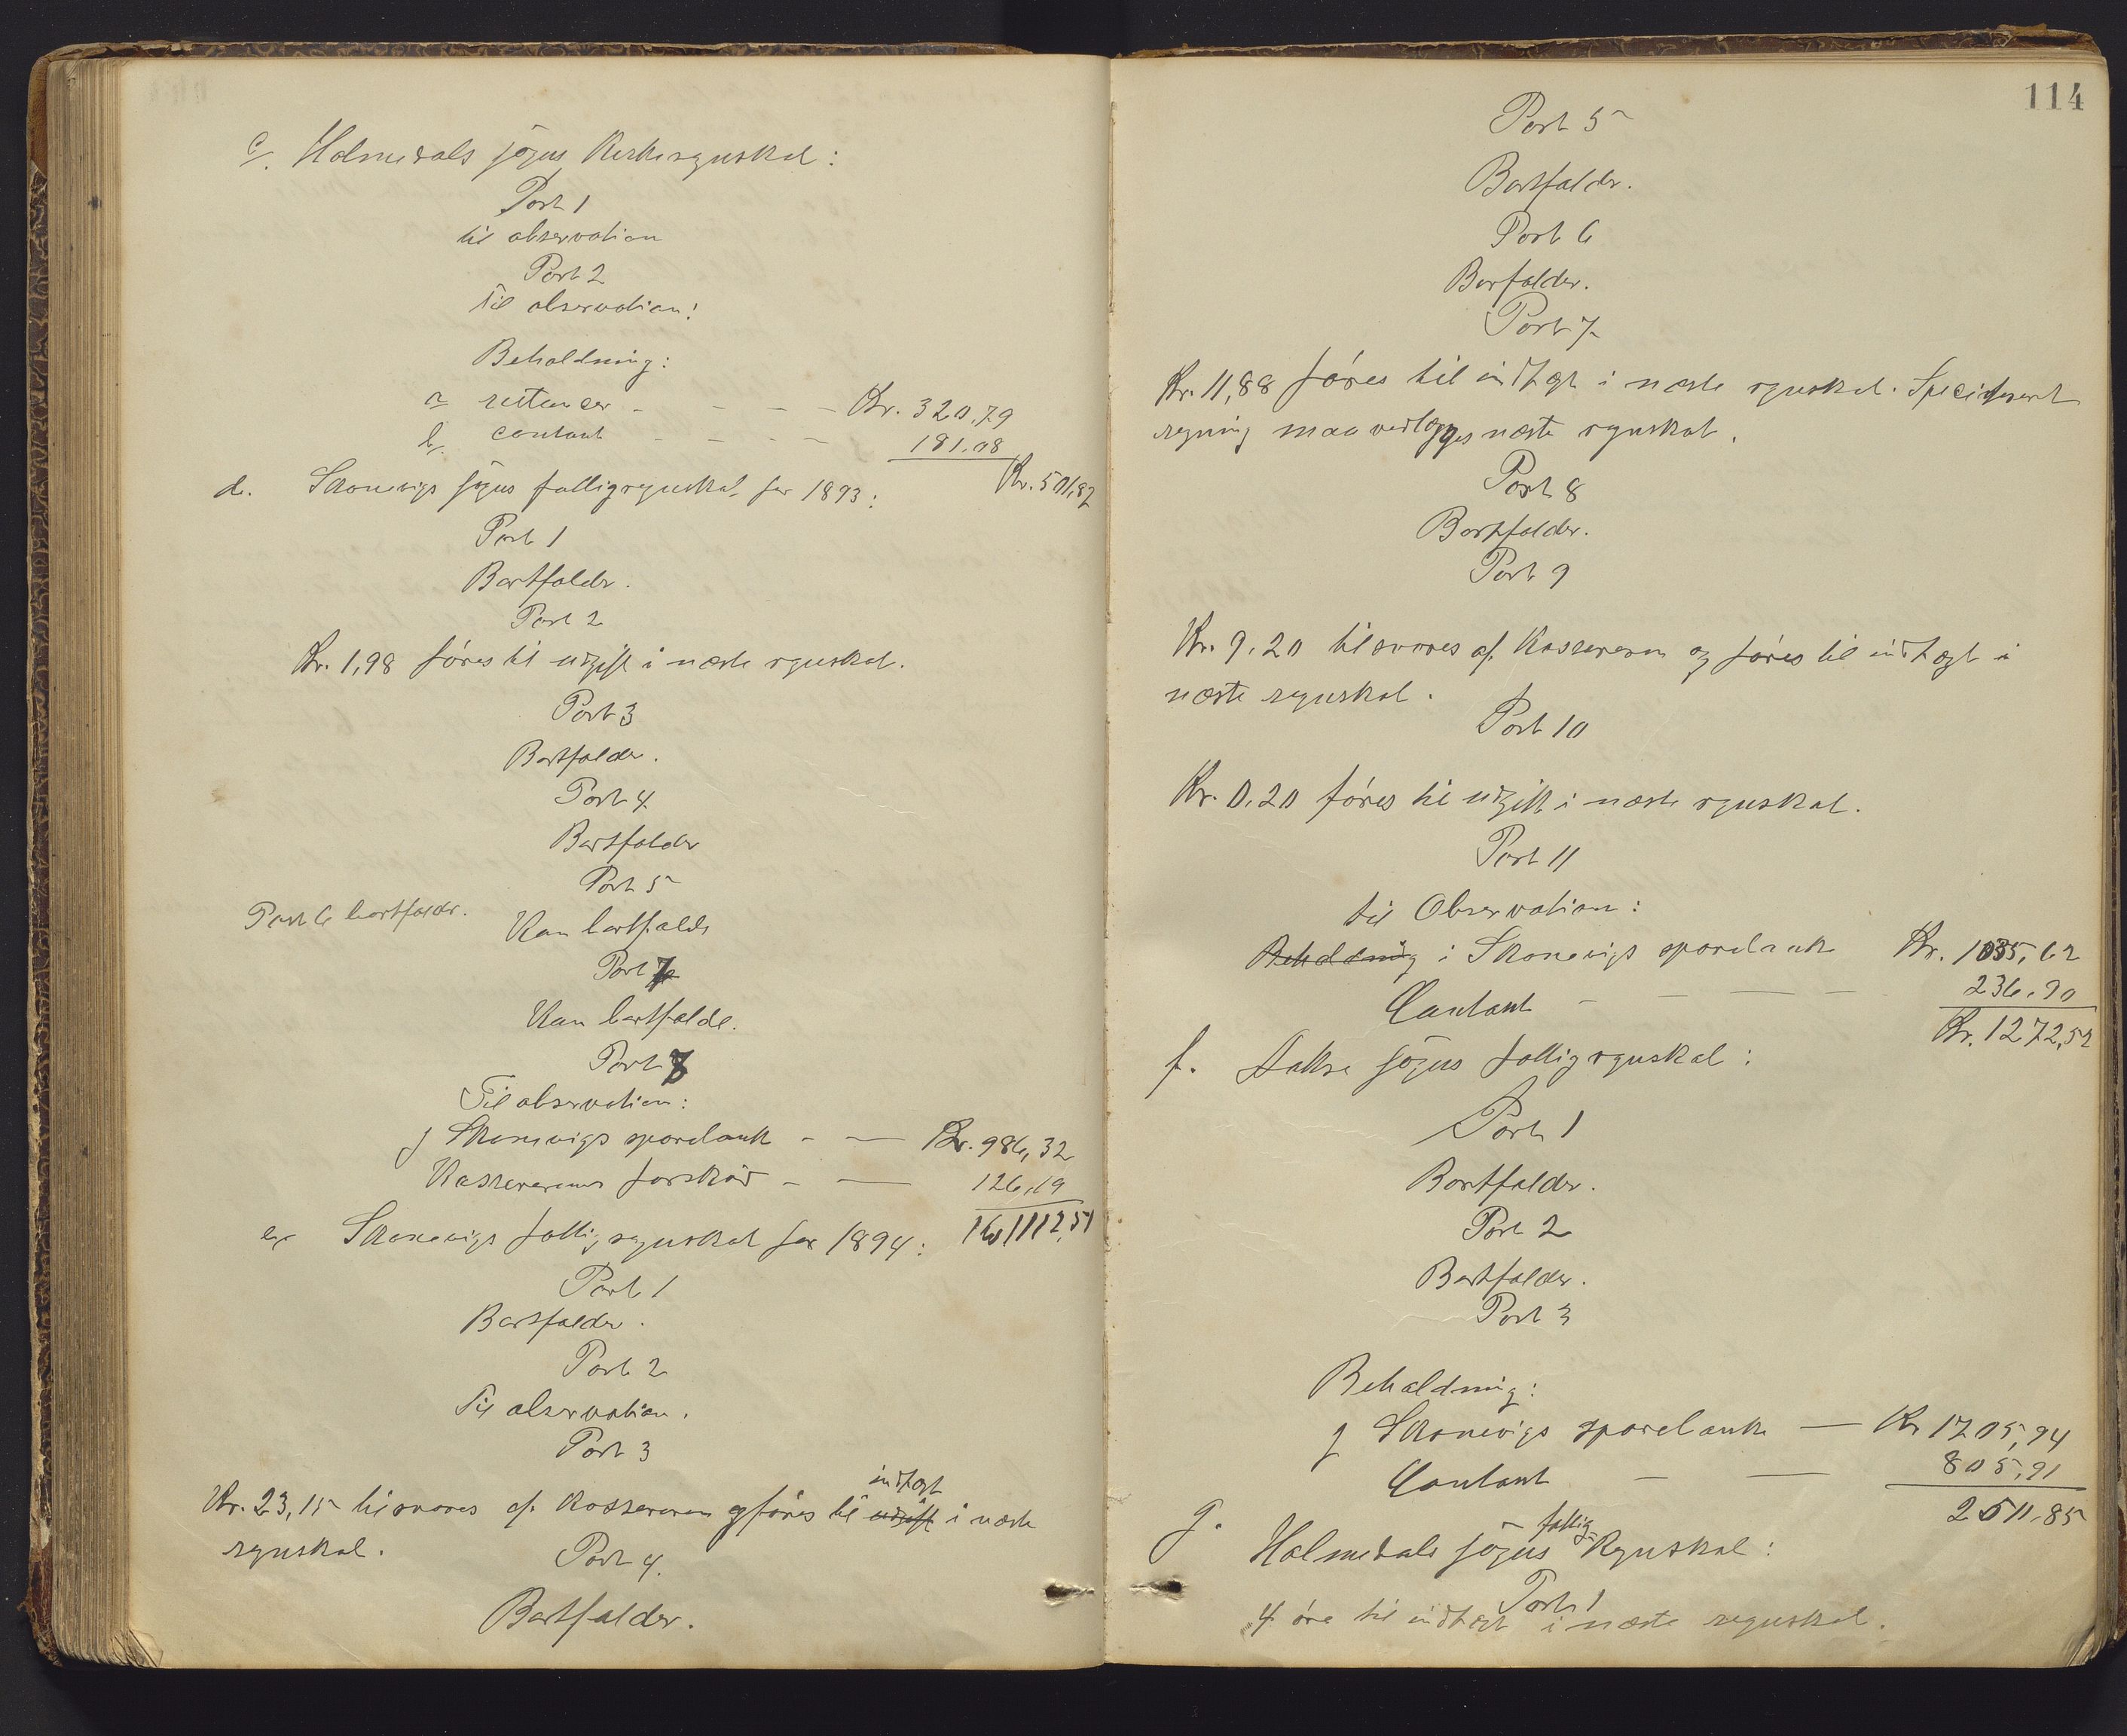 c/. Holmedals sogns Kirkeregnskab:
Post 1
til observation
Post 2
Til observation!
Beholdning:
a restancer - - - - Kr. 320,79
b/. contant - - - - 181.08
Kr. 501,87
d. Skonevigs sogns fattigregnskab for 1893:
Post 1
Bortfalder.
Post 2
Kr. 1,98 føres til udgift i næste regnskab.
Post 3
Bortfalder.
Post 4
Bortfalder
Post 5
Kan bortfalde
Post 6 bortfalder.
Post 7
Kan bortfalde.
Post 8
Til observation:
I Skonevigs sparebank - — Kr. 986,32
Kassererens forskud - — 126,19
Kr 1112,51
e, Skonevigs fattigregnskab for 1894:
Post 1
Bortfalder.
Post 2
Til observation.
Post 3
indtægt
Kr. 23,15 tilsvares af Kassereren og føres til udgift i næste
regnskab.
Post 4.
Bortfalder.
114
Post 5
Bortfalder.
Post 6
Borfalder.
Post 7
Kr. 11,88 føres til indtægt i næste regnskab. Specificeret
regning maa vedlægges næste regnskab.
Post 8
Bortfalder.
Post 9
Kr. 9,20 tilsvares af Kassereren og føres til indtægt i
næste regnskab.
Post 10
Kr. 0,20 føres til udgift i næste regnskab.
Post 11
til Observation:
Beholdning i Skonevigs sparebank Kr. 1035,62
Contant - - — — 236,90
Kr. 1272,52
f. Aakre sogns fattigregnskab:
Post 1
Bortfalder.
Post 2
Bortfalder.
Post 3
Beholdning:
I Skonevigs sparebank — Kr 1705,94
Contant — — 805,91
2511,85
g. Holmedals sogns fattig- Regnskab:
Post 1
4 øre til indtægt i næste regnskab.